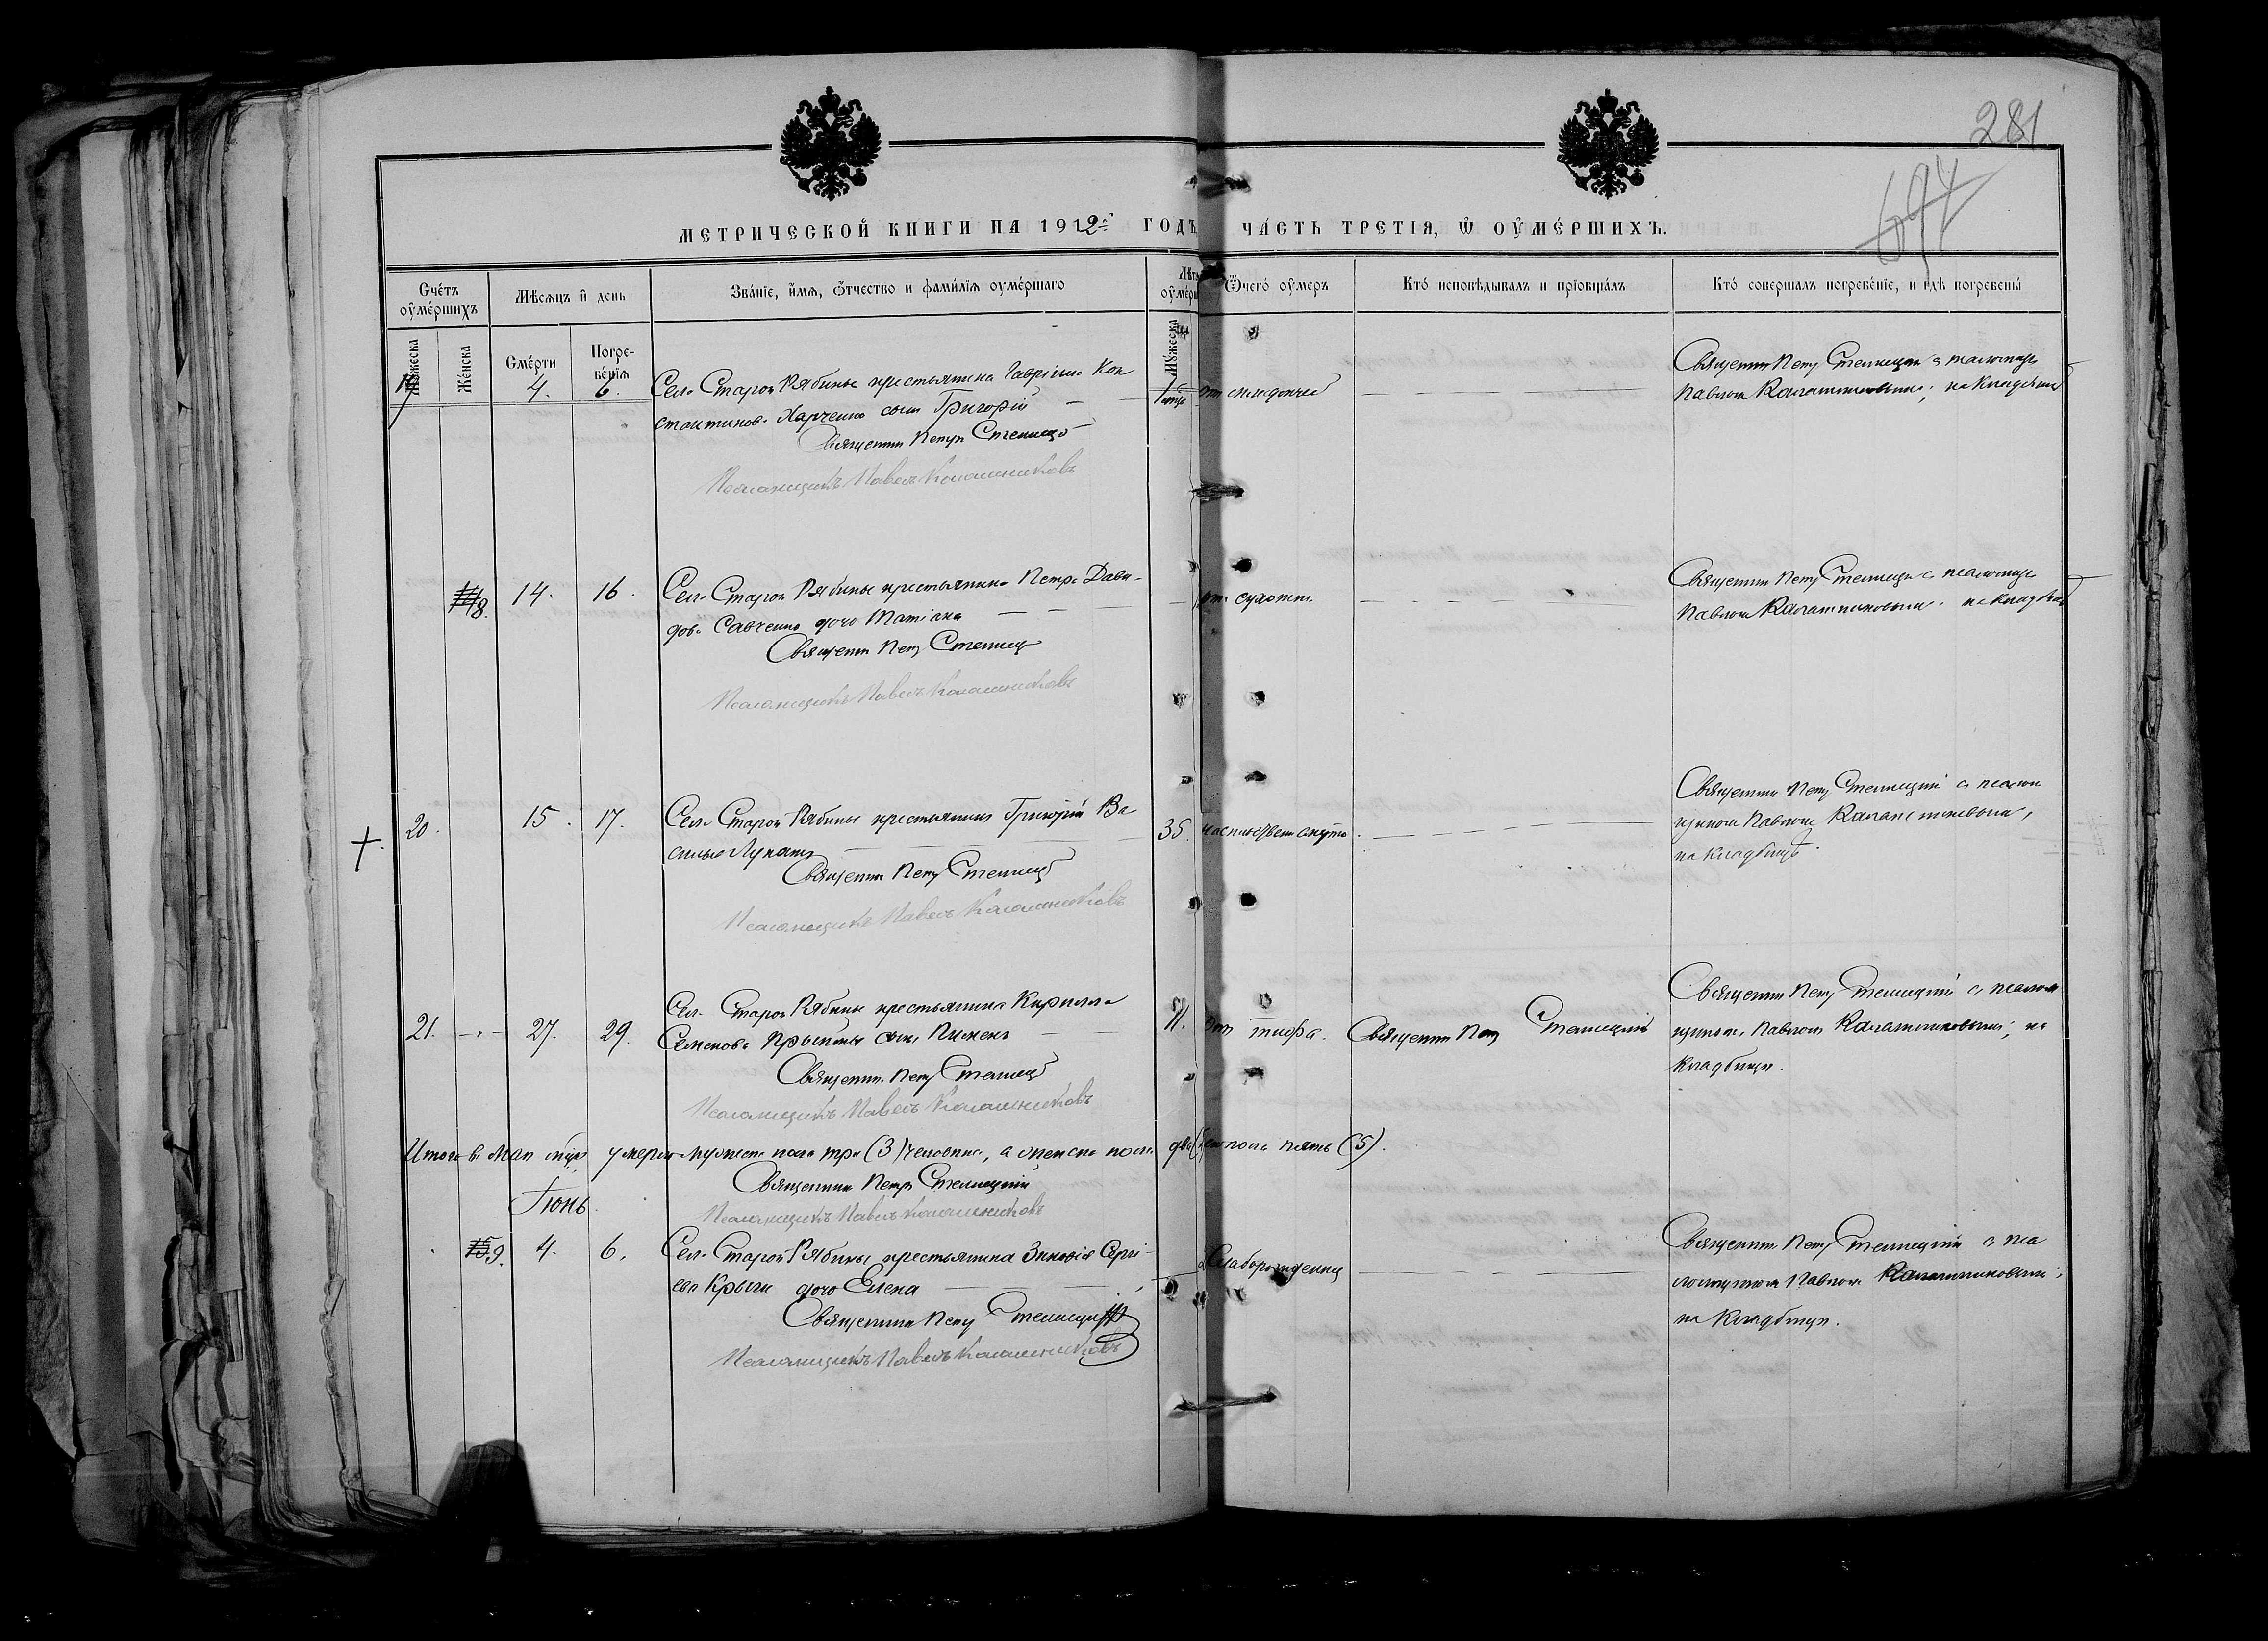 281
694
МЕТРИЧЕСКОЙ КНИГИ НА 1912 ГОДЪ ЧАСТЬ ТРЕТІЯ, Ѿ ОУМЕРШИХЪ.
Счетъ оумершихъ
Мѣсяцъ и день
Званіе, имя, отчество и фамилія оумершаго
Лѣта оумерш
Ѿчего оумеръ
Кто исповѣдывалъ и пріобщалъ
Кто совершалъ погребеніе, и гдѣ погребены
Мужеска
Женска
Смерти
Погребенія
Мужеска
19 4. 6. Села Старой Рябины крестьянина Гавріила Кон
стантинова Харченко сынъ Григорій
Священникъ Петръ Стеллецкій
Псаломщикъ Павелъ Калашниковъ
Священникъ Петръ Стеллецкій с псаломщ
Павломъ Калашниковымъ, на кладбищѣ
18. 14. 16. Села Старой Рябины крестьянина Петра Дави-
дова Савченко дочь Татіана
Священникъ Петръ Стеллецкій
Псаломщикъ Павелъ Калашниковъ
отъ сухотки
Священникъ Петръ Стеллецкій с псаломщ
Павломъ Калашниковымъ на кладбищѣ
20. 15. 17. Села Старой Рябины крестьянинъ Григорій Ва
сильевъ
Священникъ Петръ Стеллецкій
Псаломщикъ Павелъ Калашниковъ
35.
Священникъ Петръ Стеллецкій с псалом
щикомъ Павломъ Калашниковымъ,
на кладбищѣ.
21. 27. 29. Села Старой Рябины крестьянина Кирилла
Семенова сынъ Пименъ
Священникъ Петръ Стеллецкій
Псаломщикъ Павелъ Калашниковъ
11. Отъ тифа. Священникъ Петръ Стеллецкій
Священникъ Петръ Стеллецкій с псалом
щикомъ Павломъ Калашниковымъ, на
кладбищѣ.
Итого въ Маѣ умерло мужеска пола три (3) человѣка, а женска пола два пола пять (5).
Священникъ Петръ Стеллецкій
Псаломщикъ Павелъ Калашниковъ
Іюнь
9. 4. 6. Села Старой Рябины крестьянина Зиновія Сергі-
ева дочь Елена
Священникъ Петръ Стеллецкій
Псаломщикъ Павелъ Калашниковъ
Слаборожденія
Священникъ Петръ Стеллецкій с пса
ломщикомъ Павломъ Калашниковымъ,
на кладбищѣ.